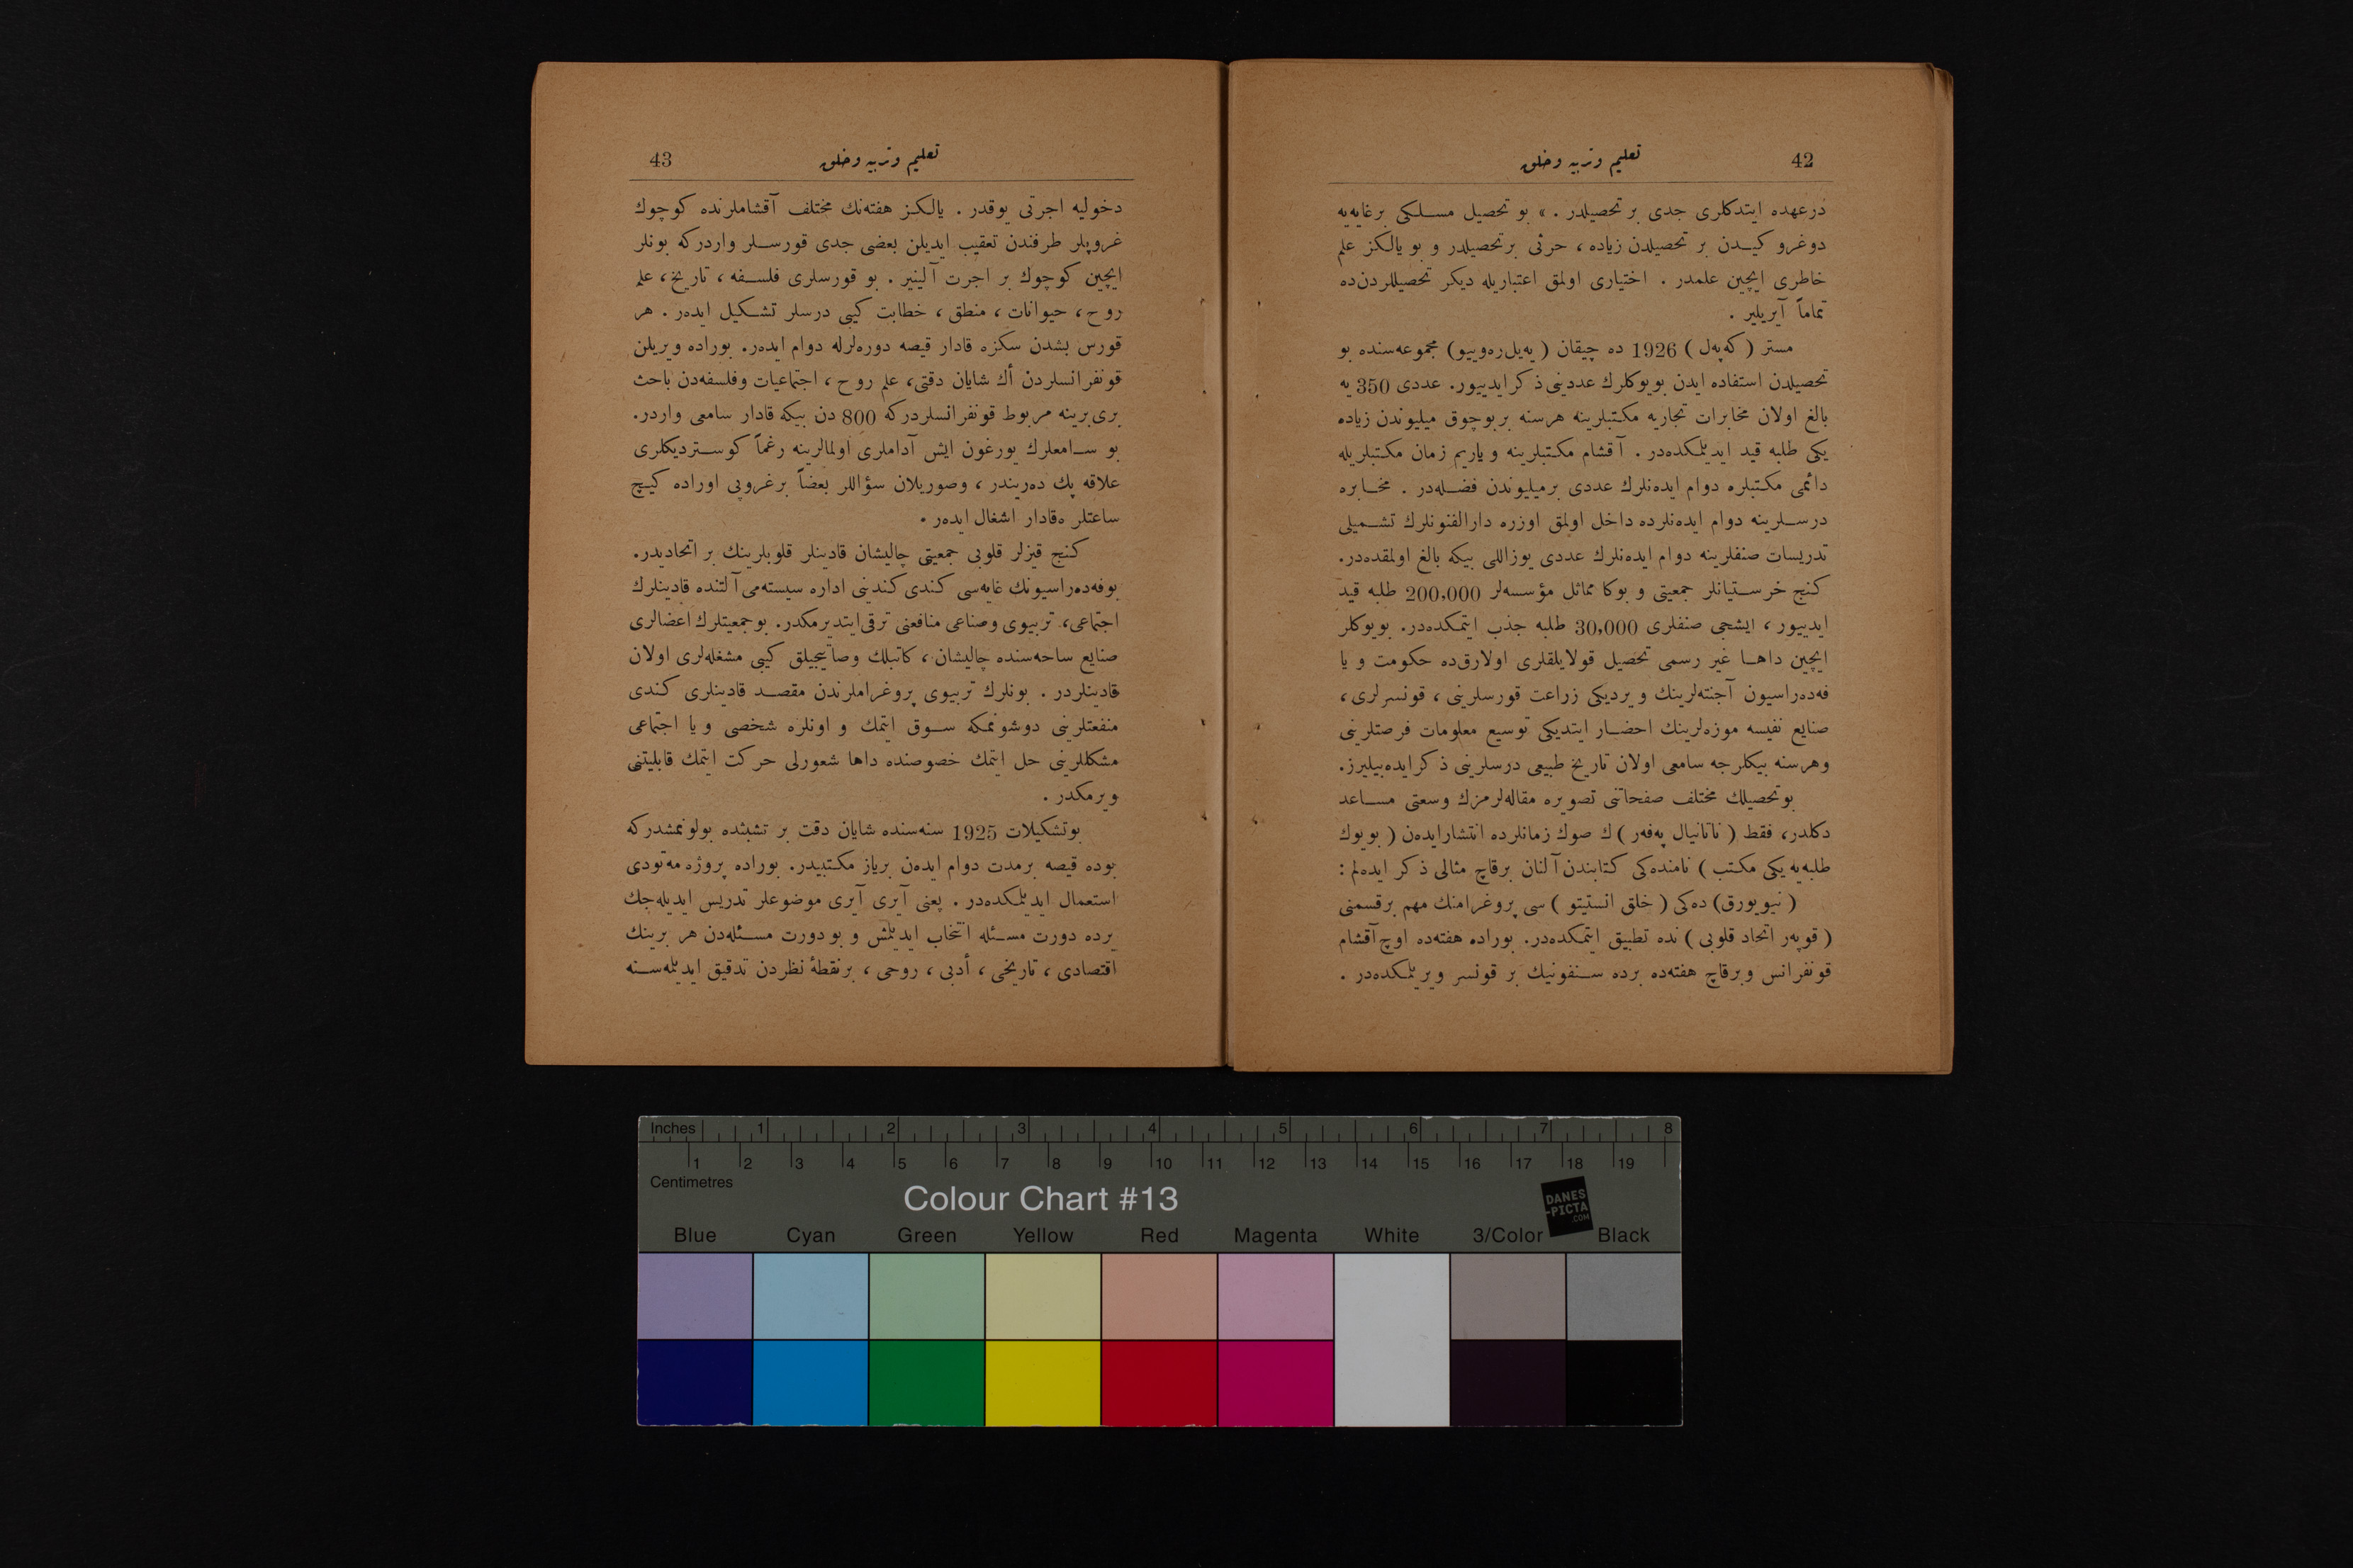 42
تعلیم وتربیه وخلق
درعهده ایتدکلری جدی بر تحصیلدر . » بو تحصیل مسلکی برغایه‌یه
دوغرو کیدن بر تحصیلدن زیاده ، حرثی برتحصیلدر و بو یالکز علم
خاطری ایچین علمدر . اختیاری اولمق اعتباریله دیکر تحصیللردن‌ده
تماماً آیریلیر .
مستر ( که‌پەل ) 1926 ده چیقان ( یه‌یل‌ره‌وییو ) مجموعه‌سنده بو
تحصیلدن استفاده ایدن بویوکلرك عددینی ذکر ایدییور. عددی 350 یه
بالغ اولان مخابرات تجاریه مکتبلرینه هرسنه بربوچوق میلیوندن زیاده
یکی طلبه قید ایدیلمکده‌در . آقشام مکتبلرینه و یاریم زمان مکتبلریله
دائمی مکتبلره دوام ایده‌نلرك عددی برمیلیوندن فضله‌در . مخابره
درسلرینه دوام ایده‌نلرده داخل اولمق اوزره دارالفنونلرك تشمیلی
تدریسات صنفلرینه دوام ایده‌نلرك عددی یوزاللی بیکه بالغ اولمقده‌در.
کنج خرستیانلر جمعیتی و بوکا مماثل مؤسسه‌لر 200,000 طلبه قید
ایدییور ، ایشجی صنفلری 30,000 طلبه جذب ایتمکده‌در. بویوکلر
ایچین داها غیر رسمی تحصیل قولایلقلری اولارق‌ده حکومت و یا
فه‌ده‌راسیون آجنته‌لرینك ویردیکی زراعت قورسلرینی ، قونسرلری ،
صنایع نفیسه موزه‌لرینك احضار ایتدیکی توسیع معلومات فرصتلرینی
وهرسنه بیکلرجه سامعی اولان تاریخ طبیعی درسلرینی ذکر ایده‌بیلیرز.
بوتحصیلك مختلف صفحاتنی تصویره مقاله‌لرمزك وسعتی مساعد
دکلدر، فقط ( ناتانیال په‌فه‌ر ) ك صوك زمانلرده انتشار ایده‌ن ( بویوك
طلبه‌یه یکی مکتب ) نامنده‌کی کتابندن آلنان برقاچ مثالی ذکر ایده‌لم :
( نیویورق ) ده‌کی ( خلق انستیتو ) سی پروغرامنك مهم برقسمنی
( قوپه‌ر اتحاد قلوبی ) نده تطبیق ایتمکده‌در. بوراده هفته‌ده اوچ آقشام
قونفرانس وبرقاچ هفته‌ده برده سنفونیك بر قونسر ویریلمکده‌در .
43
تعلیم وتربیه وخلق
دخولیه اجرتی یوقدر . یالکز هفته‌نك مختلف آقشاملرنده کوچوك
غروپلر طرفندن تعقیب ایدیلن بعضی جدی قورسلر واردرکه بونلر
ایچین کوچوك بر اجرت آلینیر . بو قورسلری فلسفه ، تاریخ ، علم
روح ، حیوانات ، منطق ، خطابت کیبی درسلر تشکیل ایده‌ر . هر
قورس بشدن سکزه قادار قیصه دوره‌لرله دوام ایده‌ر. بوراده ویریلن
قونفرانسلردن أك شایان دقتی، علم روح ، اجتماعیات وفلسفه‌دن باحث
بری‌برینه مربوط قونفرانسلردرکه 800 دن بیکه قادار سامعی واردر.
بو سامعلرك یورغون ایش آداملری اولمالرینه رغماً کوستردیکلری
علاقه پك ده‌ریندر ، وصوریلان سؤاللر بعضاً برغروپی اوراده کیچ
ساعتلره‌قادار اشغال ایده‌ر .
کنج قیزلر قلوبی جمعیتی چالیشان قادینلر قلوبلرینك بر اتحادیدر.
بوفه‌ده‌راسیونك غایه‌سی کندی کندینی اداره سیسته‌می آلتنده قادینلرك
اجتماعی، تربیوی وصناعی منافعنی ترقی ایتدیرمکدر. بوجمعیتلرك اعضالری
صنایع ساحه‌سنده چالیشان ، کاتبلك وصاتیجیلق کیبی مشغله‌لری اولان
قادینلردر . بونلرك تربیوی پروغراملرندن مقصد قادینلری کندی
منفعتلرینی دوشونمکه سوق ایتمك و اونلره شخصی و یا اجتماعی
مشکللرینی حل ایتمك خصوصنده داها شعورلی حرکت ایتمك قابلیتنی
ویرمکدر .
بوتشکیلات 1925 سنه‌سنده شایان دقت بر تشبثده بولونمشدرکه
بوده قیصه برمدت دوام ایده‌ن بریاز مکتبیدر. بوراده پروژه مه‌تودی
استعمال ایدیلمکده‌در . یعنی آیری آیری موضوعلر تدریس ایدیله‌جك
یرده دورت مسئله انتخاب ایدیلمش و بو دورت مسئله‌دن هر برینك
اقتصادی ، تاریخی ، أدبی ، روحی ، برنقطهٔ نظردن تدقیق ایدیلمه‌سنه
Inches 1 2 3 4 5 6 7 8
1 2 3 4 5 6 7 8 9 10 11 12 13 14 15 16 17 18 19
Centimetres
Colour Chart #13
DANES
-PICTA
.COM
Blue Cyan Green Yellow Red Magenta White 3/Color Black